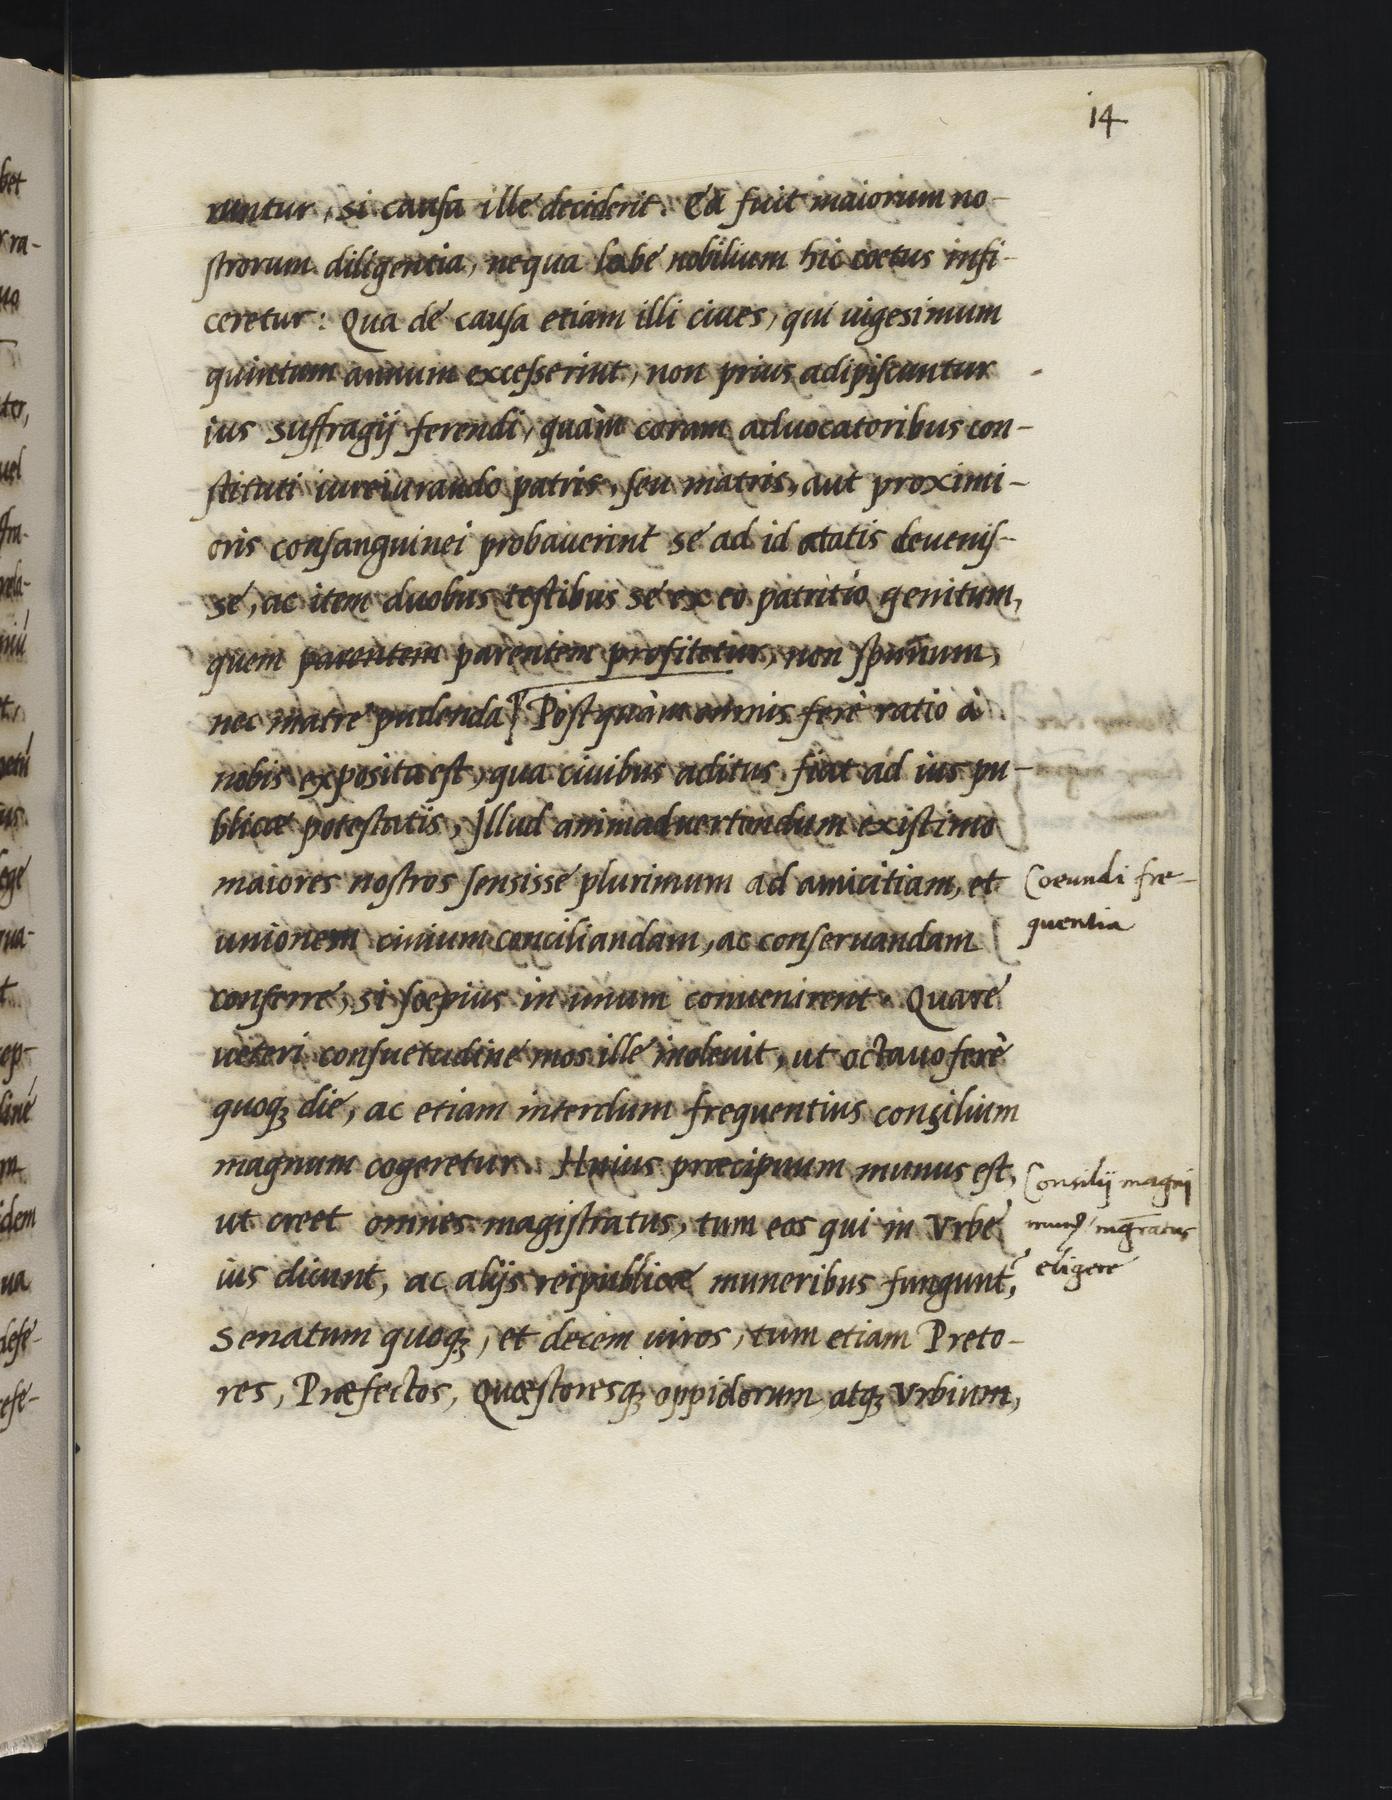 14
runtur, si causa ille deciderit. Ea fuit maiorum no-
strorum diligentia, nequa labe nobilium hic coetus infi-
ceretur: Qua de causa etiam illi ciues, qui uigesimum
quintum annum excesserint, non prius adipiscantur
ius suffragij ferendi, quàm coram aduocatoribus con-
stituti iureiurando patris, seu matris, aut proximi-
oris consanguinei probauerint se ad id ætatis deuenis-
se, ac item duobus testibus se ex eo patritio genitum,
quem parentem profitetur, non spurium,
nec matre pudenda Postquàm omnis ferè ratio à
nobis exposita est, qua ciuibus aditus fiat ad ius pu-
blicæ potestatis, Illud animaduertendum existimo
maiores nostros sensisse plurimum ad amicitiam, et
unionem ciuium conciliandam, ac conseruandam
conferre, si sæpius in unum conuenirent. Quare
ueteri consuetudine mos ille inoleuit, ut octauo ferè
quoq; die, ac etiam interdum frequentius consilium
magnum cogeretur. Huius præcipuum munus est,
ut creet omnes magistratus, tum eos qui in Vrbe
ius dicunt, ac alijs reipublicæ muneribus fungunt,
Senatum quoq;, et decem uiros, tum etiam Preto-
res, Præfectos, Quæstoresq; oppidorum atq; Vrbium,
Coeundi fre-
quentia
Consilij magni
eligere